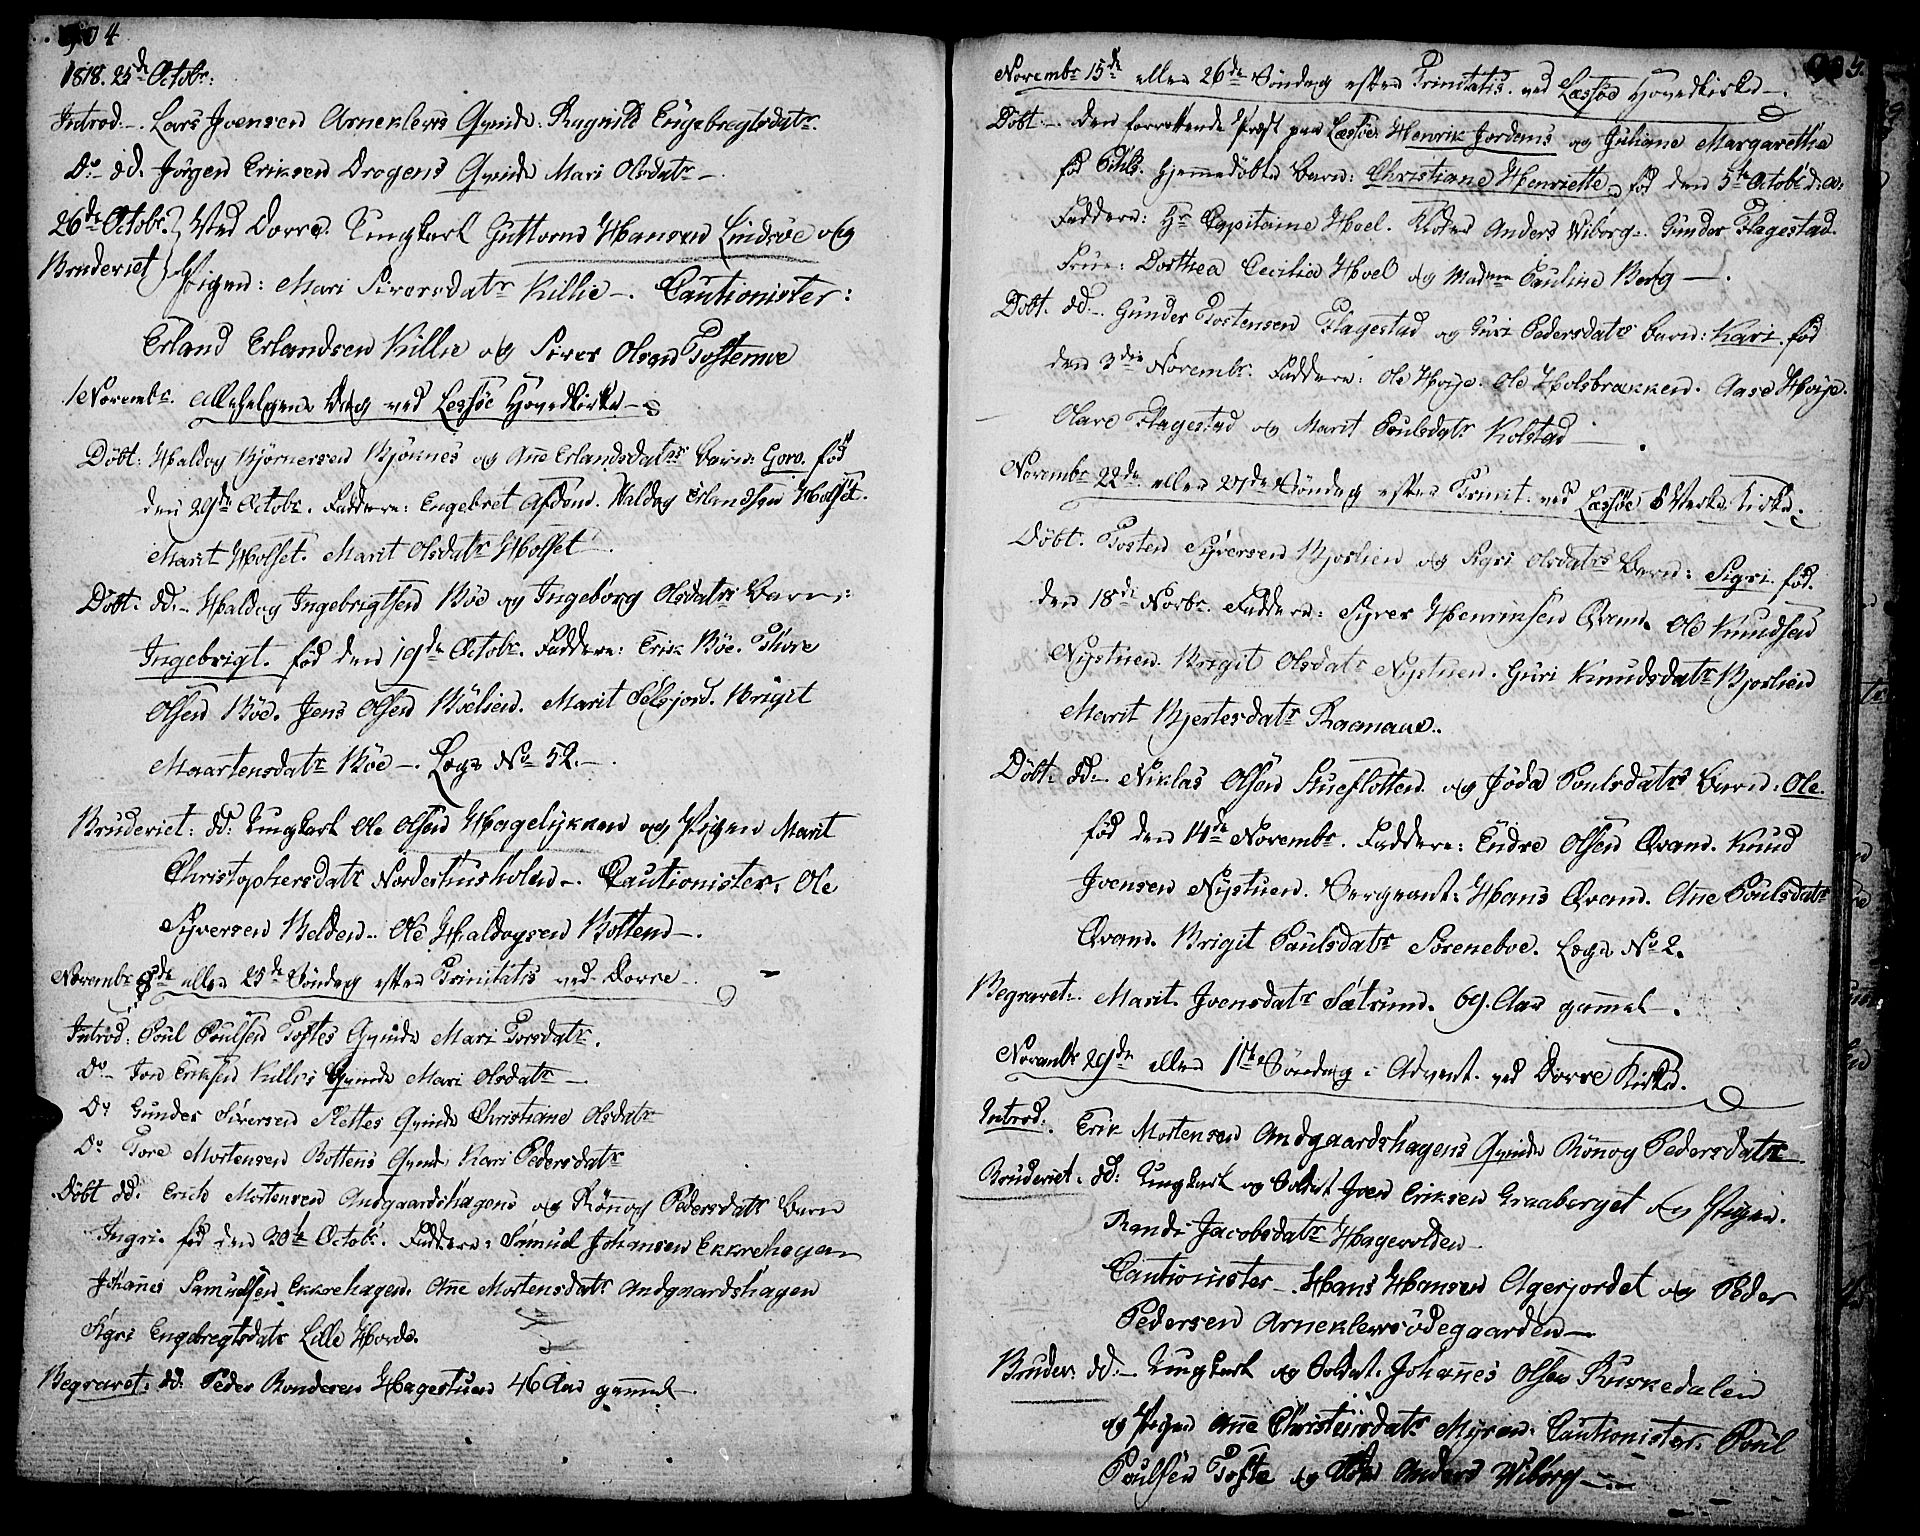 1818. 25de Octobr:
Introd:-. Lars Joensen Arneklevs Qvinde: Ragnild Engebregtsdatr.
Do- dd. Jörgen Eriksen Drogens Qvinde Mari Olsdatr-.
26de Octobr. Ved Dovre. Ungkarl Guttorm Hansen Lindsöe og
Bruderiet Pigen: Mari Siversdatr Killie-. Cautionister:
Erland Erlandsen Killie og Siver Olsen Toftemoe
1 Novembr. Allehelgens Dag ved Lessöe Hovedkirke-
Döbt: Haldog Björnersen Björnnes og Ane Erlandsdatrs Barn: Goro. fød
den 29de Octobr. Faddere: Engebret Asdom. Haldog Erlandsen Holset.
Marit Holset. Marit Olsdatr Holset-.
Döbt. dd.- Haldog Ingebrigtsen Böe og Ingeborg Olsdatrs Barn:
Ingebrigt. fød den 19de Octobr. Faddere: Erik Böe. Thore
Olsen Böe. Jens Olsen Böelien. Marit Selsjord. Brigit
Maartensdatr Böe-. Læge No 52.-
Bruderiet: dd: Ungkarl Ole Olsen Hagelykken og Pigen Marit
Christophersdatr Nordestuskolen-. Cautionister: Ole
Syversen Belden-. Ole Haldogsen Botten-.
Novembr 8de eller 25de Söndag efter Trinitatis ved Dovre-.
Introd: Poul Poulsen Toftes Qvinde Mari Torsdatr.
Do- Jon Eriksen Killies Qvinde Mari Olsdatr-.
Do Gunder Siversen Slettes Qvinde Christiane Olsdatr
Do Tore Mortensen Bottens Qvinde Kari Pedersdatr
Döbt dd. Erich Mortensen Andgaardshagens og Rönnog Pedersdatrs Barn
Ingri. fød den 30te Octobr. Faddere: Samuel Johansen Ekkrehagen
Johannes Samuelsen Ekkrehagen. Ane Mortensdatr Andgaardshagen
Sigri Engebregtsdatr Lille Horde.
Begravet: dd: Peder Bonderen Hagestuen 46 Aar gammel-.
Novembr 15de eller 26de Söndag efter Trinitatis ved Læssöe Hovedkirke-.
Döbt-. den forrettende Præst paa Læssöe Henrik Jordens og Juliane Margarethe
fød hjemmedöbte Barn: Christiane Henriette, fød den 5te Octobr d:a:
Faddere: Hr Capitaine Hoel. Anders Wiborg-. Gunder Flagestad.
Frue: Dorthea Cecilia Hoel og Madm Pauline Berg-.
Döbt. dd-. Gunder Tostensen Flagestad og Guri Pedersdatrs Barn: Kari. fød
den 3die Novembr. Faddere: Ole Hoije. Ole Holsbrækken. Aase Hoije.
Olave Flagestad og Marit Poulsdatr Kolstad-.
Novembr 22de eller 27de Söndag efter Trinit. ved Læssöe Verks Kirke.
Döbt. Tosten Syversen Bjorlien og Sigri Olsdatrs Barn: Sigri. fød.
den 18de Novbr. Faddere: Syver Henriksen Qvam. Ole Knudsen
Nystuen. Brigit Olsdatr Nystuen. Guri Knudsdatr Bjorlien
Marit Hjertesdatr Raanaae.
Döbt. dd-. Niklas Olsen Stueflotten og Jöda Poulsdatrs Barn: Ole.
fød den 14de Novembr. Faddere: Endre Olsen Qvam. Knud
Joensen Nystuen. Sergeant: Hans Qvam. Ane Poulsdatr
Qvam. Brigit Paulsdatr Soreneboe. Læge No 2.
Begravet:. Marit Joensdatr Sætrum. 69. Aar gammel-.
Novembr 29de eller 1ste Söndag i Advent. ved Dovre Kirke.
Introd: Erik Mortensen Andgaardshagens Qvinde Rönnog Pedersdatr
Bruderiet. dd: Ungkarl og Soldat Joen Eriksen Graaberget og Pigen.
Randi Jacobsdatr Hagevolden
Cautionister-. Hans Hansen Agerjordet og Peder
Pedersen Arneklevsödegaarden-.
Bruder: dd:- Ungkarl og Soldat. Johannes Olsen Ruskedalen
og Pigen Ane Christensdatr Myren. Cautionister. Poul
Poulsen Tofte og Anders Wiborg-.